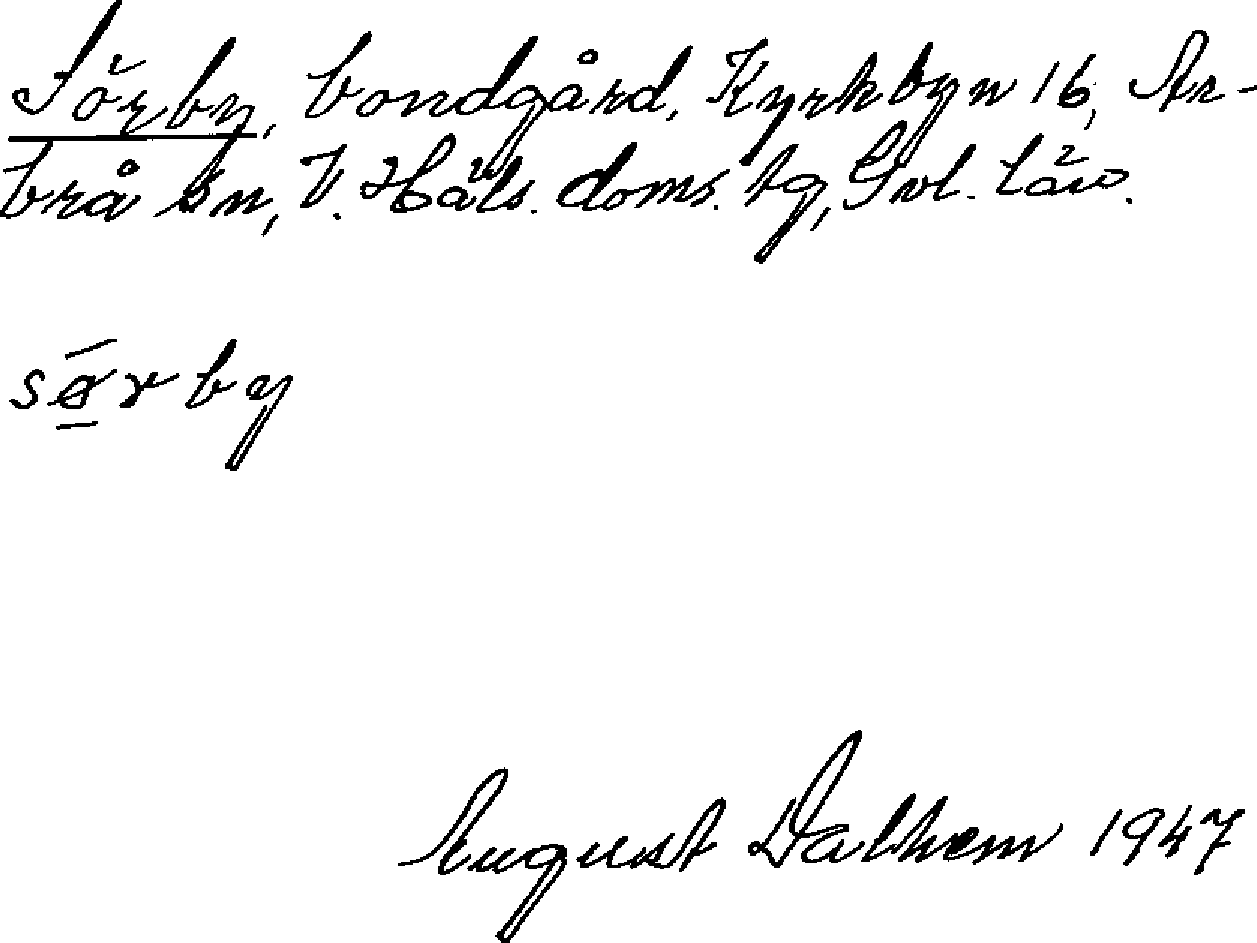 Sörby, bondgård, Kyrkbyn 16, Ar-
brå sn, V. Häls. doms. tg, Gvl. län.
sǿ̱rby
August Dalhem 1947